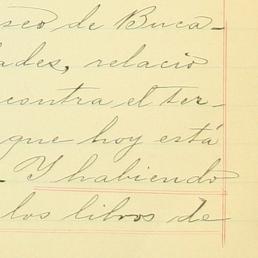 seo de Buca-
ades, relacio
contra el ter-
que hoy está
. Y habiendo
los libros de